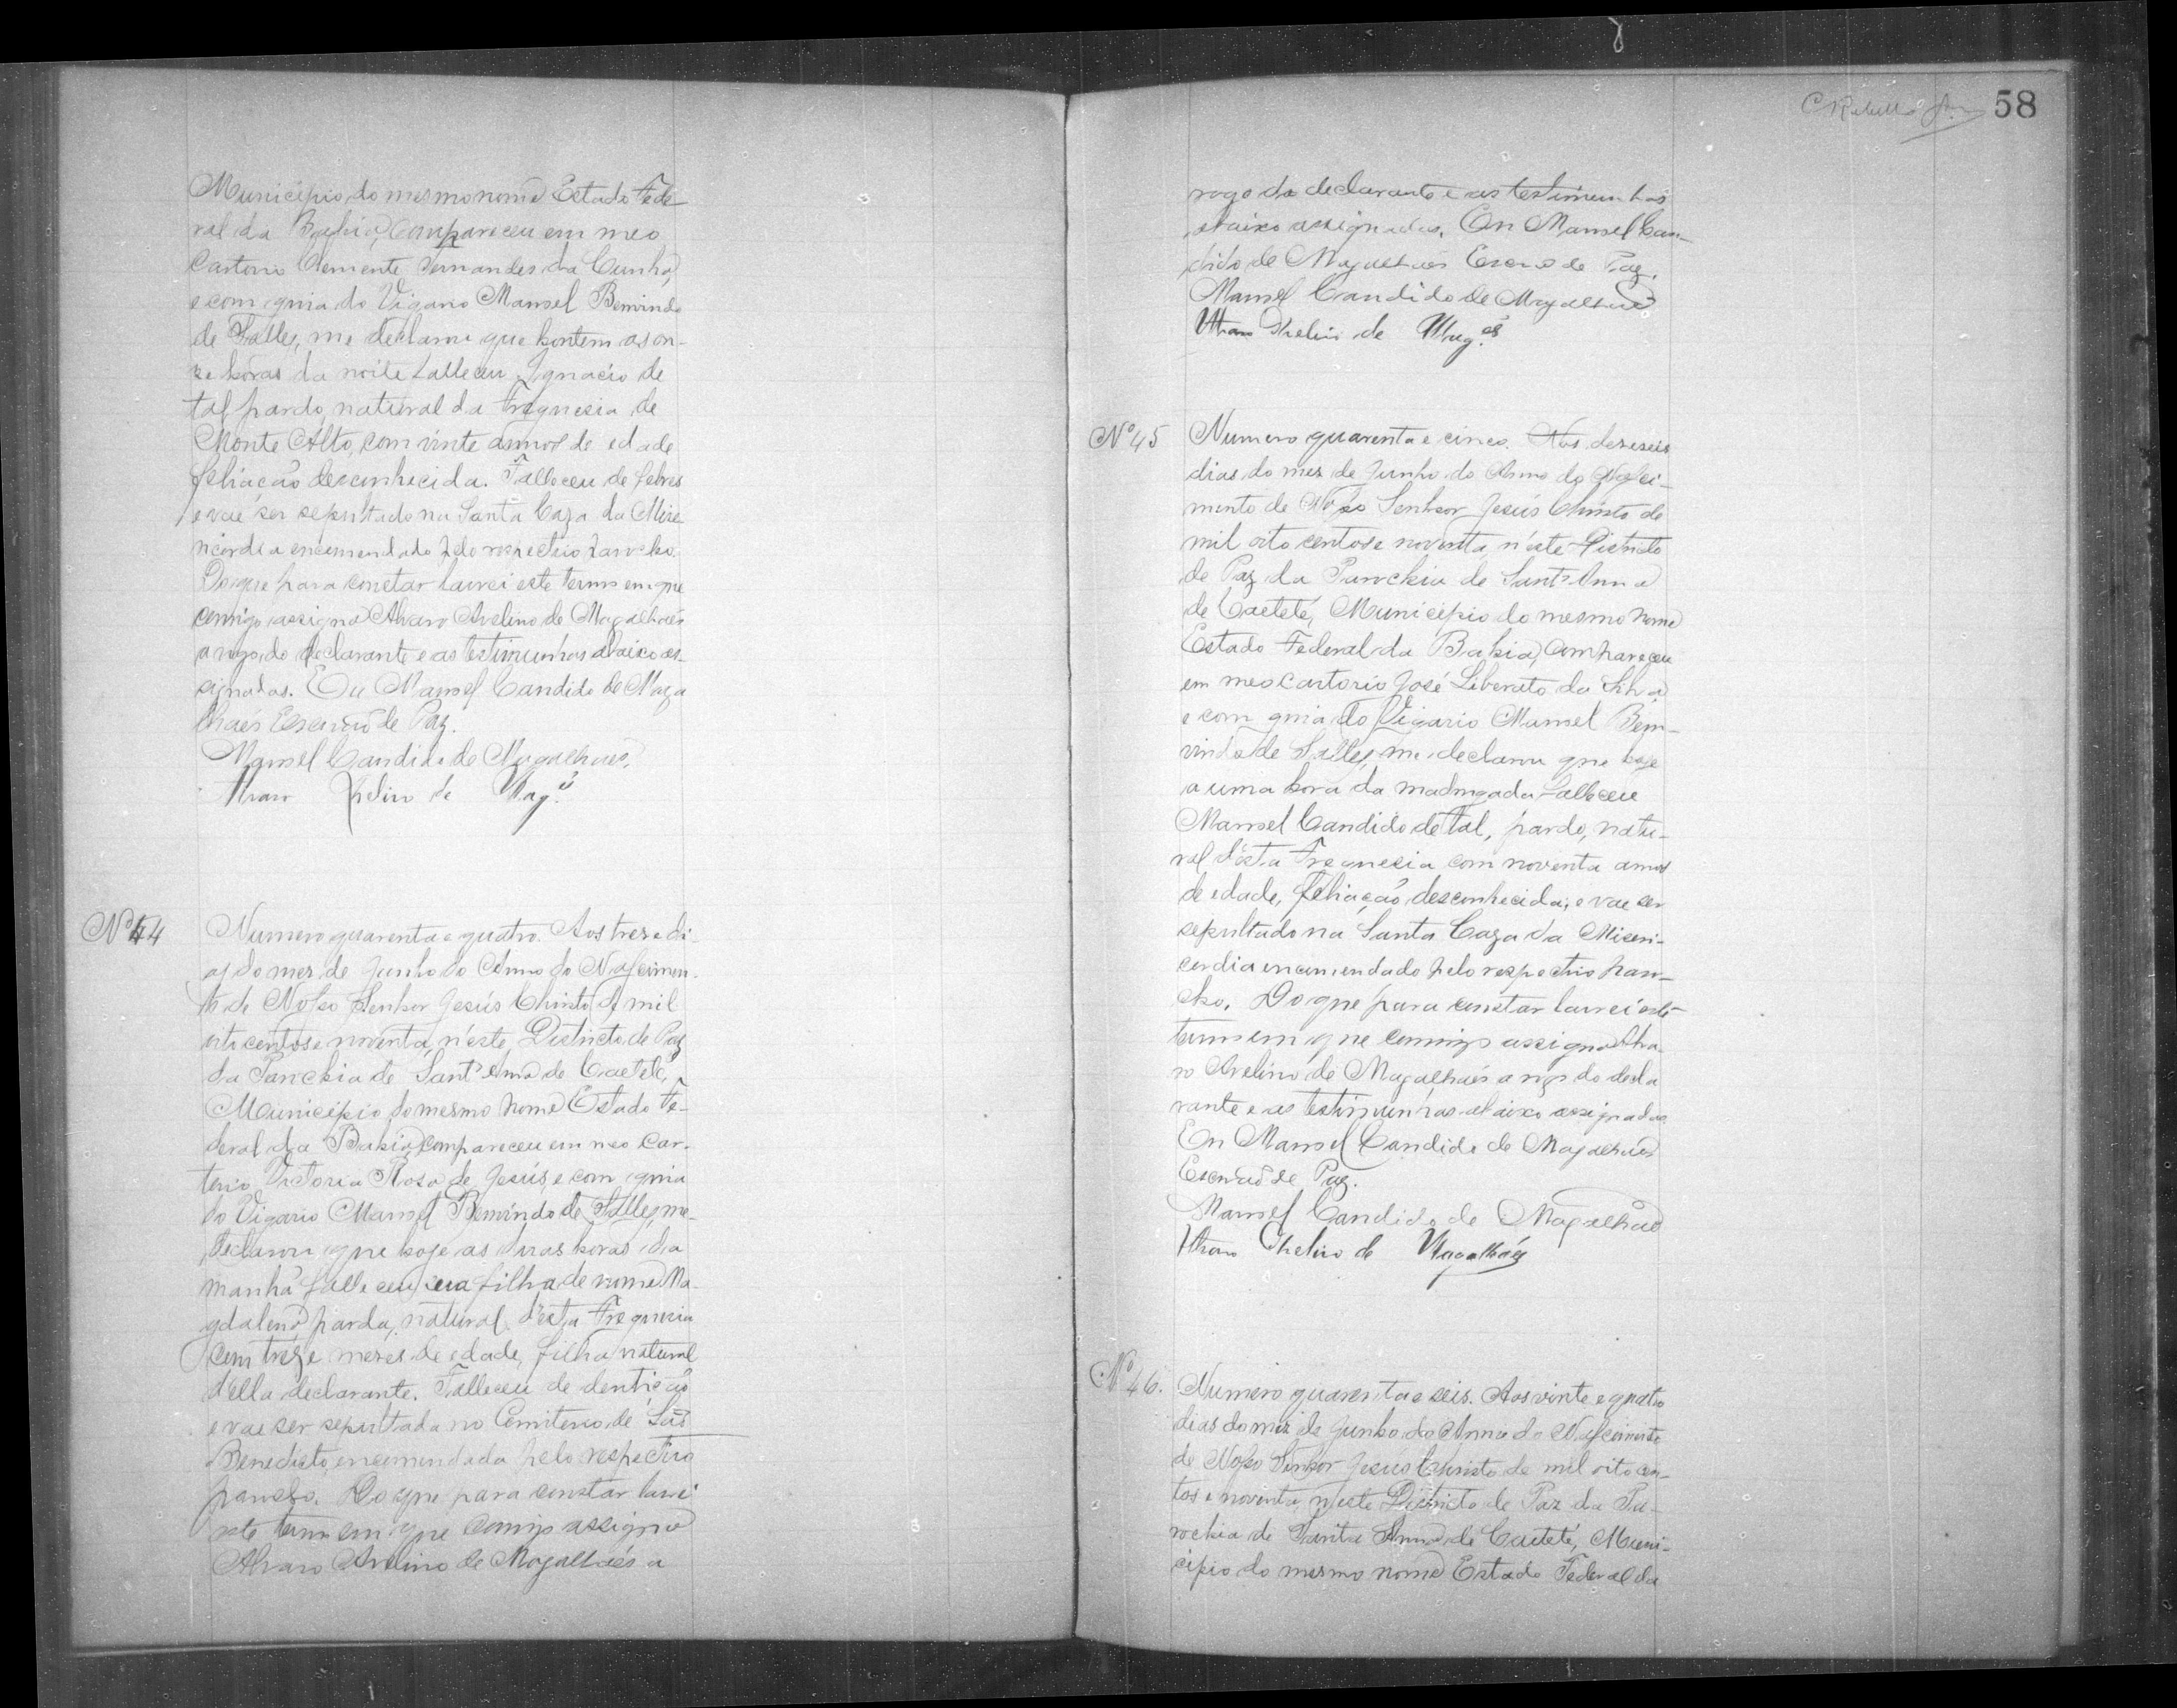 Municipio do mesmo nome Estado Fede
ral da Bahia, compareceu em meo
Cartorio Clemente Fernandes da Cunha,
e com guia do Vigario Manoel Bemvindo
de Salles, me declarou que hontem as on-
ze horas da noite falleceu Ignacio de
tal, pardo, natural da Freguesia de
Monte Alto, com vinte annos de edade
filiação desconhecida. Falleceu de febres
e vae ser sepultado na Santa Caza da Mize
ricordia encomendado pelo respectivo parocho.
Do que para constar lavrei este termo em que
comigo assigna Alvaro Avelino de Magalhaés
a rogo do declarante e as testimunhas abaixo as-
signadas. Eu Manoel Candido de Maga
lhaés Escrivaõ de Paz.
Manoel Candido de Magalhaés.
Alvaro Avelino de Mag.es
Nº 44
Numero quarenta e quatro. Aos treze di-
as do mez de Junho do Anno do Nascimen-
to de Nosso Senhor Jesús Christo de mil
oito centos e noventa, n'este Districto de Paz
da Parochia de Sant'Anna de Caeteté,
Municipio do mesmo nome Estado Fe-
deral da Bahia, compareceu em meo Car-
torio Victoria Rosa de Jesús, e com guia
do Vigario Manoel Bemvindo de Salles, me
declarou que hoje as duas horas da
manhã falleceu sua filha de nome Ma-
gdalena, parda, natural d'esta Freguesia
com treze mezes de edade, filha natural
d'ella declarante. Falleceu de dentiçaõ
e vae ser sepultada no Cemiterio de Saõ
Benedicto, encomendada pelo respectivo
parocho. Do que para constar lavrei
este termo em que comigo assigna
Alvaro Avelino de Magalhaés a
58
rogo da declarante e as testimunhas
abaixo assignadas. Eu Manoel Can-
dido de Magalhaés Escrivaõ de Paz.
Manoel Candido de Magalhaés
Alvaro Avelino de Mag.es
Nº 45
Numero quarenta e cinco. Aos dezeseis
dias do mez de Junho do Anno do Nasci-
mento de Nosso Senhor Jesús Christo de
mil oito centos e noventa, n'este Districto
de Paz da Parochia de Sant'Anna
de Caeteté, Municipio do mesmo nome
Estado Federal da Bahia, compareceu
em meo cartorio José Liberato da Silva
e com guia do Vigario Manoel Bem-
vindo de Salles, me declarou que hoje
a uma hora da madrugada falleceu
Manoel Candido de tal, pardo, natu-
ral d'esta Freguesia com noventa annos
de edade, filiaçaõ desconhecida, e vae ser
sepultado na Santa Caza da Miseri-
cordia encomendado pelo respectivo paro-
cho. Do que para constar lavrei este
termo em que comigo assigna Alva-
ro Avelino de Magalhaés a rogo do decla
rante e as testimunhas abaixo assignadas.
Eu Manoel Candido de Magalhaés
Escrivaõ de Paz.
Manoel Candido de Magalhaes
Alvaro Avelino de Magalhaés
Nº 46.
Numero quarenta e seis. Aos vinte e quatro
dias do mez de Junho do Anno do Nascimento
de Nosso Senhor Jesús Christo de mil oito cen-
tos e noventa, n'este Districto de Paz da Pa-
rochia de Santa Anna de Caeteté, Muni-
cipio do mesmo nome Estado Federal da